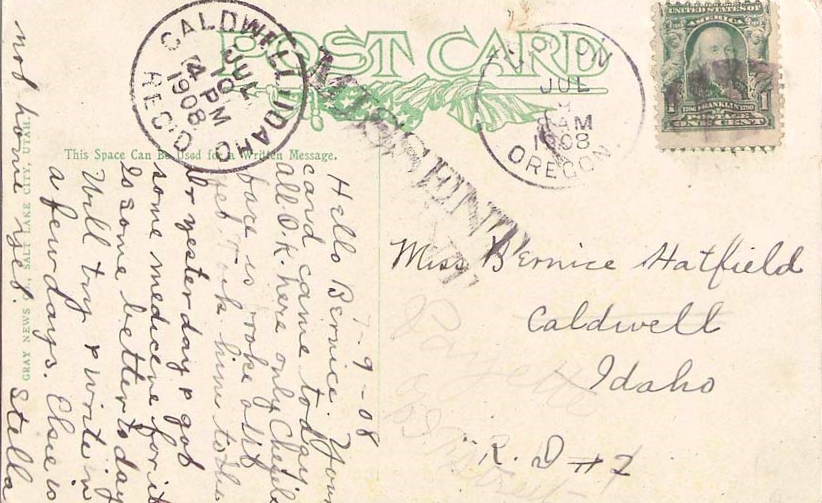 POST CARD
This Space Can Be Used for a Written Message.
GRAY NEWS CO., SALT LAKE CITY, UTAH
CALDWELL, IDAHO
JUL
10
4 PM
1908
REC'D
MISSENT
JUL
AM
1908
OREGON
UNITED STATES OF
AMERICA
1706 FRANKLIN 1790
1
ONE CENT
Miss Bernice Hatfield
Caldwell
Idaho
R. D #2
Payette
7-9-08
Hello Bernice. Your
card came today.
all O.K. here only
face is broke out
yet. Took him to the
Dr yesterday & got
some medicene for it
is some better today
Will try & write in
a few days. Elsie is
not home yet. Stella